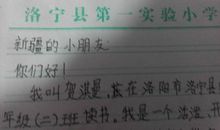 洛宁县第一实验小学
新疆的小朋友:
你们好!
我叫贺淇曼,在洛阳市洛宁县
年级(二)班读书,我是一个活泼、